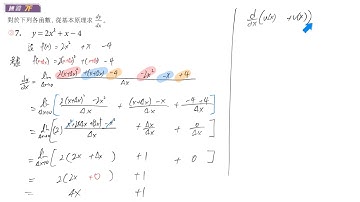 練習 7F
對於下列各函數，從基本原理求 dy/dx。
7. y = 2x² + x − 4
f(x) = 2x² + x − 4
dy/dx = lim Δx→0 2(x+Δx)² + (x+Δx) − 4 − 2x² − x + 4 / Δx
= lim Δx→0 [ 2(x+Δx)² − 2x² / Δx + (x+Δx) − x / Δx + −4 + 4 / Δx ]
= lim Δx→0 [ (2) x² + 2xΔx + (Δx)² − x² / Δx + Δx / Δx + 0 / Δx ]
= lim Δx→0 [ 2(2x + Δx) + 1 + 0 ]
= 2(2x + 0) + 1
= 4x + 1
d/dx (u(x) + v(x))